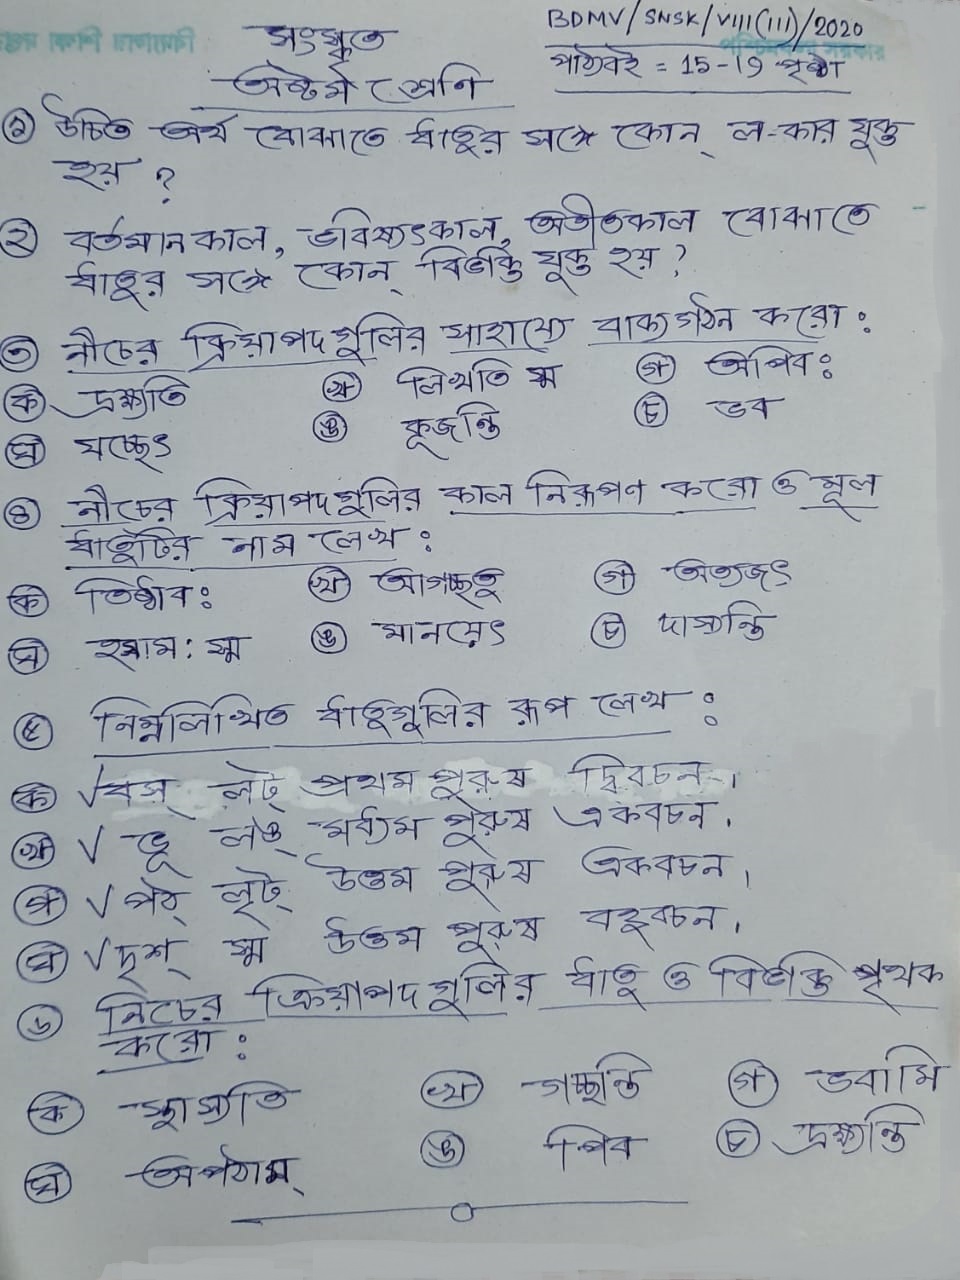 সংস্কৃত
BDMV/SNSK/VIII(III)/2020
অষ্টম শ্রেণি
পাঠ্যবই = 15-19 পৃষ্ঠা
১ উচিত অর্থ বোঝাতে ধাতুর সঙ্গে কোন্ ল-কার যুক্ত
হয় ?
২ বর্তমানকাল, ভবিষ্যৎকাল, অতীতকাল বোঝাতে
ধাতুর সঙ্গে কোন্ বিভক্তি যুক্ত হয় ?
৩ নীচের ক্রিয়াপদগুলির সাহায্যে বাক্যগঠন করো :
ক দ্রক্ষ্যতি খ লিখতি স্ম গ অপিবঃ
ঘ যচ্ছেৎ ঙ কূজন্তি চ ভব
৪ নীচের ক্রিয়াপদগুলির কাল নিরূপণ করো ও মূল
ধাতুটির নাম লেখ :
ক তিষ্ঠাবঃ খ আগচ্ছতু গ অত্যজৎ
ঘ হসামঃ স্ম ঙ মানয়েৎ চ দাস্যন্তি
৫ নিম্নলিখিত ধাতুগুলির রূপ লেখ :
ক √বস্ লট্ প্রথম পুরুষ দ্বিবচন।
খ √ভূ লঙ্ মধ্যম পুরুষ একবচন।
গ √পঠ্ লৃট্ উত্তম পুরুষ একবচন।
ঘ √দৃশ্ স্ম উত্তম পুরুষ বহুবচন।
৬ নিচের ক্রিয়াপদগুলির ধাতু ও বিভক্তি পৃথক
করো :
ক স্থাস্যতি খ গচ্ছন্তি গ ভবামি
ঘ অপঠাম্ ঙ পিব চ দ্রক্ষ্যন্তি